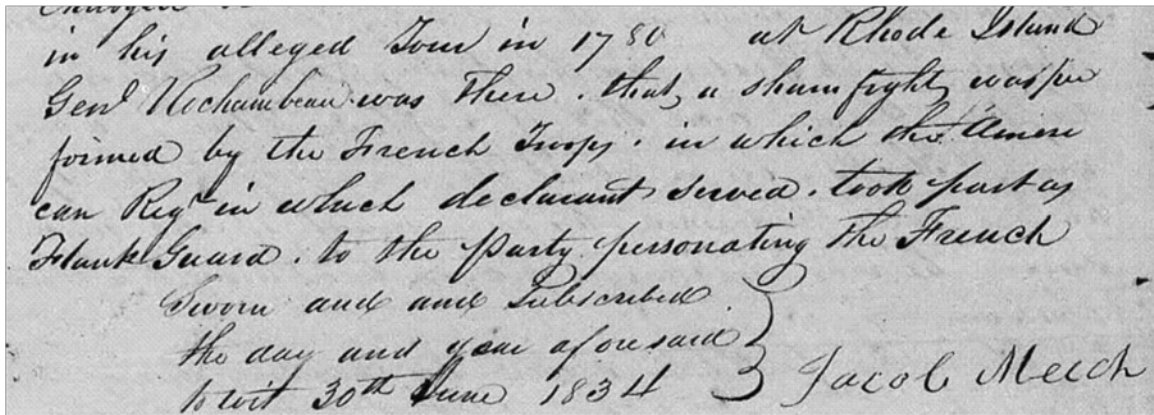 in his alleged Tour in 1780 at Rhode Island
Genl Rochambeau was there. that a sham fight was per
formed by the French Troops. in which the Ameri
can Regt in which declarant served. took part as
Flank Guard. to the party personating the French
Sworn and and Subscribed
the day and year aforesaid
to wit 30th June 1834
Jacob Meech